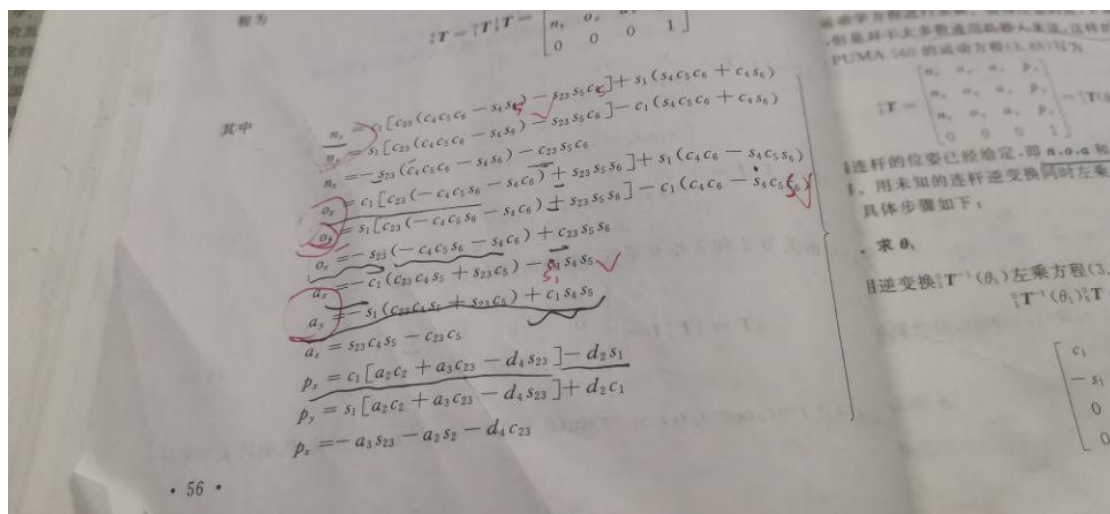 程为
⁰₆T = ⁰₃T ³₆T =
0 0 0 1
其中
nₓ = c₁[c₂₃(c₄c₅c₆ − s₄s₆) − s₂₃s₅c₆] + s₁(s₄c₅c₆ + c₄s₆)
n_y = s₁[c₂₃(c₄c₅c₆ − s₄s₆) − s₂₃s₅c₆] − c₁(s₄c₅c₆ + c₄s₆)
n_z = −s₂₃(c₄c₅c₆ − s₄s₆) − c₂₃s₅c₆
oₓ = c₁[c₂₃(−c₄c₅s₆ − s₄c₆) + s₂₃s₅s₆] + s₁(c₄c₆ − s₄c₅s₆)
o_y = s₁[c₂₃(−c₄c₅s₆ − s₄c₆) + s₂₃s₅s₆] − c₁(c₄c₆ − s₄c₅s₆)
o_z = −s₂₃(−c₄c₅s₆ − s₄c₆) + c₂₃s₅s₆
aₓ = −c₁(c₂₃c₄s₅ + s₂₃c₅) − s₁s₄s₅
a_y = −s₁(c₂₃c₄s₅ + s₂₃c₅) + c₁s₄s₅
a_z = s₂₃c₄s₅ − c₂₃c₅
pₓ = c₁[a₂c₂ + a₃c₂₃ − d₄s₂₃] − d₂s₁
p_y = s₁[a₂c₂ + a₃c₂₃ − d₄s₂₃] + d₂c₁
p_z = −a₃s₂₃ − a₂s₂ − d₄c₂₃
· 56 ·
但是对于大多数通用机器人来说,这样的
PUMA 560 的运动方程(3.
0 0 0 1
连杆的位姿已经给定,即 n,o,a 和
用未知的连杆逆变换同时左乘
具体步骤如下:
求 θ₁
用逆变换⁰₁T⁻¹(θ₁)左乘方程(3.
⁰₁T⁻¹(θ₁)⁰₆T
c₁
−s₁
0
0